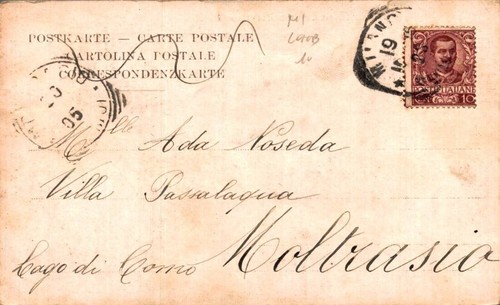 POSTKARTE - CARTE POSTALE
CARTOLINA POSTALE
CORRESPONDENZKARTE
MILANO
19
05
POSTE ITALIANE
10
05
Mlle
Ada Noseda
Villa Passalaqua
Lago di Como Moltrasio